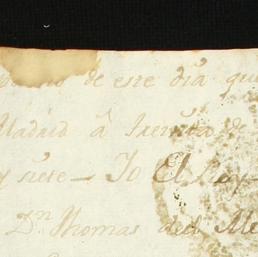 de este dia que
Madrid â treinta de
y siete — Yo El Rey
Dn Thomas del Me